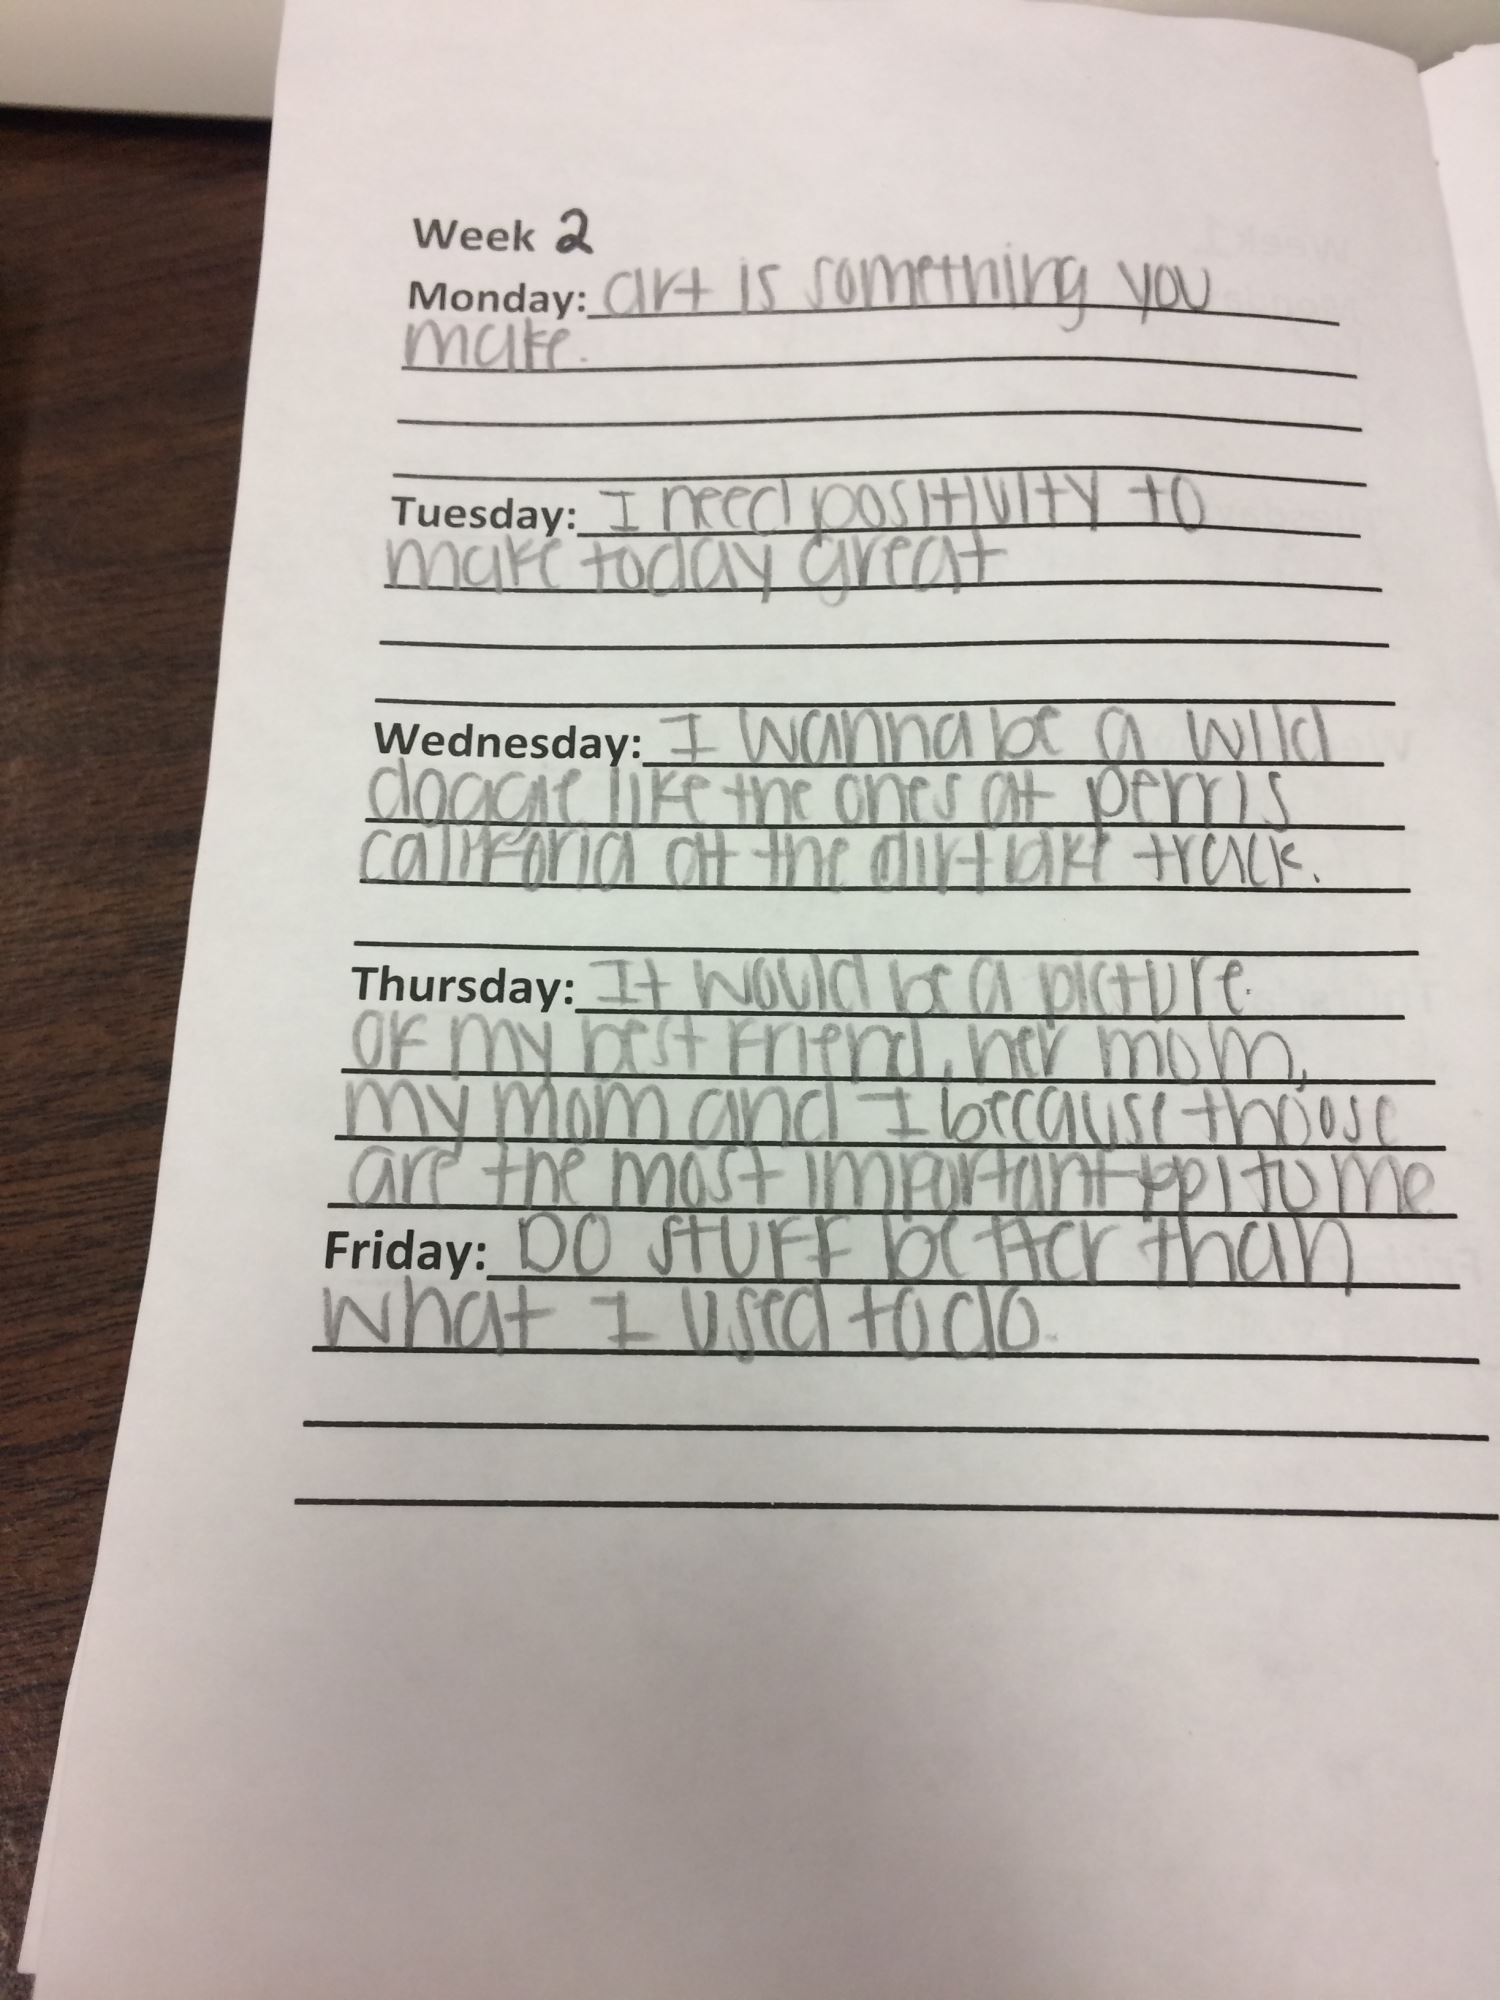 Week 2
Monday: art is something you
make.
Tuesday: I need positivity to
make today great
Wednesday: I wanna be a wild
doggie like the ones at perris
califoria at the dirt bike track.
Thursday: It would be a picture
of my best friend, her mom,
my mom and I because thoose
are the most important ppl to me
Friday: DO stuff better than
what I used to do.